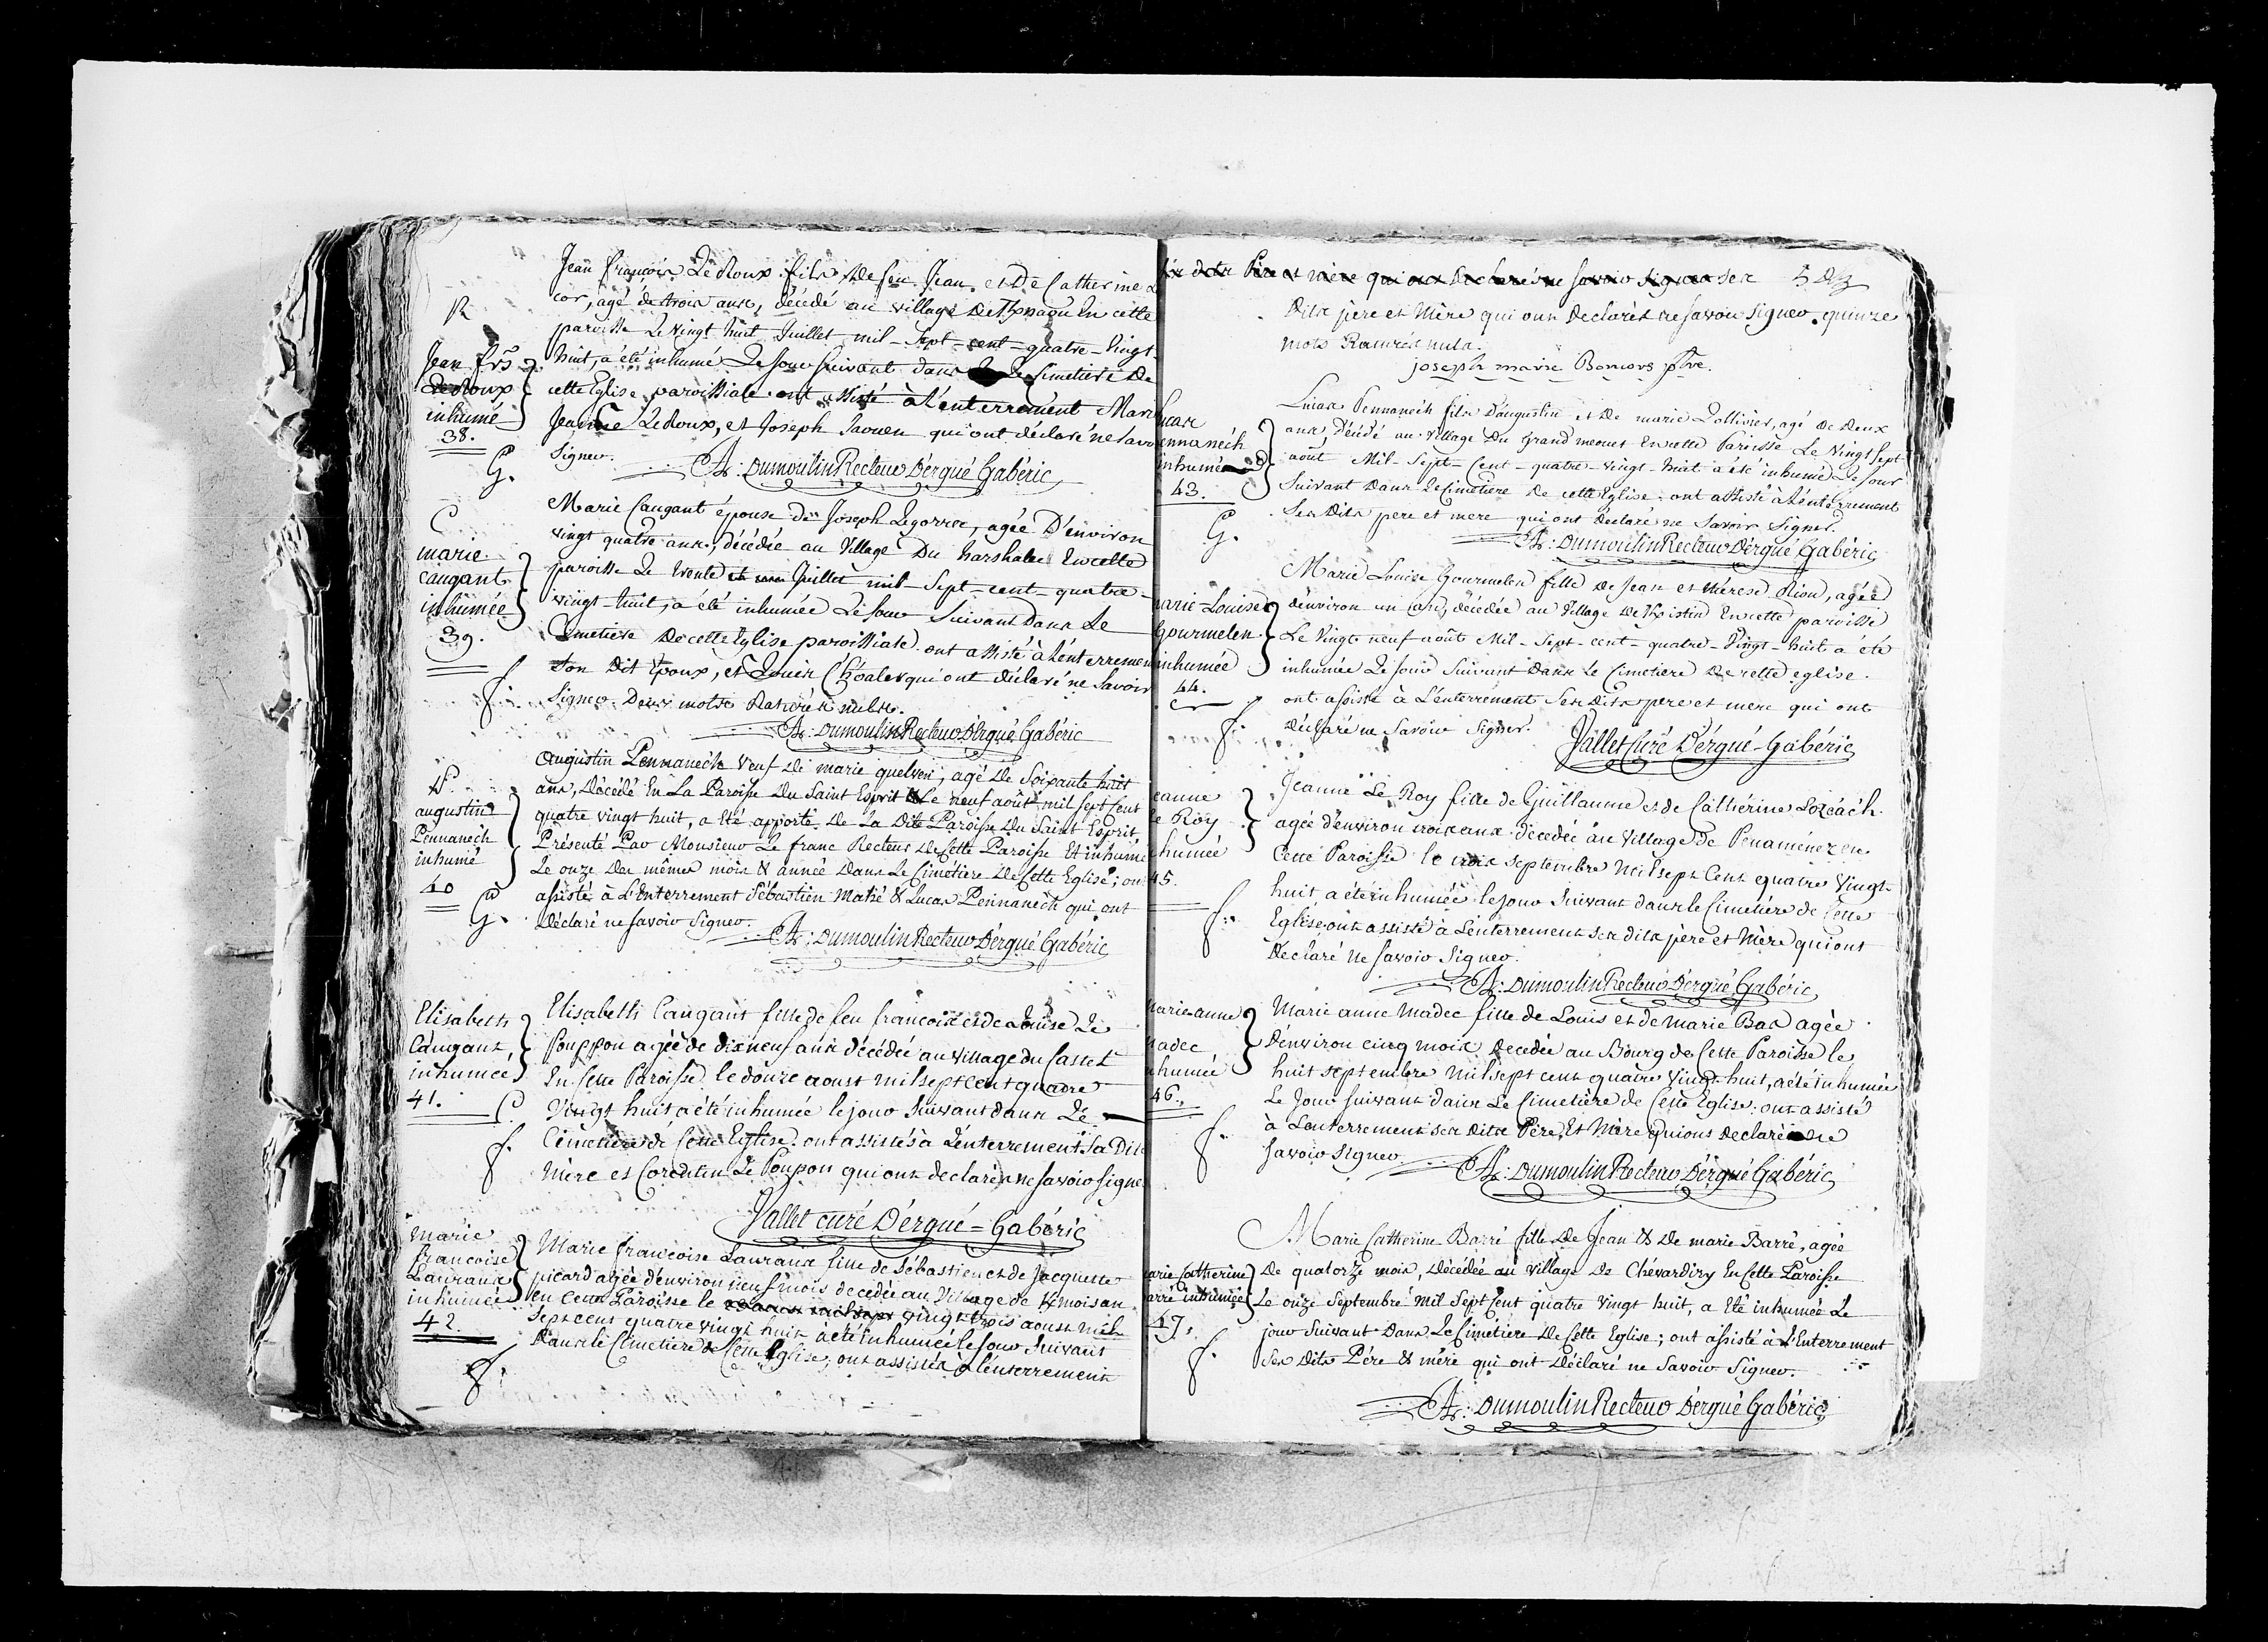 R
Jean frs
Le Roux
inhumé
38.
G.
Jean françois Le Roux fils De feu Jean et De Catherine
cor, agé de trois ans, décédé au village De En cette
paroisse Le vingt huit Juillet mil-Sept-cent-quatre-Vingt-
huit, a été inhumé Le jour Suivant dans Le Cimetiere De
cette Eglise paroissiale. ont assisté à l'enterrement
Le Roux, et Joseph Saouen qui ont déclaré ne
Signer.
Dumoulin Recteur D'ergué Gabéric
C
marie
caugant
inhumée
39.
f.
Marie Caugant épouse de Joseph Legorrec, agée D'environ
vingt quatre ans, décédée au Village Du En cette
paroisse Le trente Juillet mil-Sept-cent-quatre-
vingt-huit, a été inhumée Le jour Suivant Dans Le
Cimetiere De cette Eglise paroissiale. ont assisté à L'enterrement
Son Dit Epoux, et Louis qui ont déclaré ne Savoir
Signer. Deux mots Raturés nuls.
Dumoulin Recteur D'ergué Gabéric
P.
augustin
Pennanech
inhumé
40
G.
Augustin Pennanech Veuf De marie quelven, agé De Soixante huit
ans, Décédé En La Paroisse Du Saint Esprit Le neuf août mil sept cent
quatre vingt huit, a Eté apporté De La Dite Paroisse Du Saint Esprit,
Présenté Par Monsieur Le franc Recteur De Cette Paroisse Et inhumé
Le onze Des mêmes mois & année Dans Le Cimétière De Cette Eglise; ont
assisté à L'Enterrement Sébastien & Lucas Pennanech qui ont
déclaré ne Savoir Signer.
Dumoulin Recteur D'ergué Gabéric
Elisabeth
Caugant,
inhumée
41.
C.
f.
Elisabeth Caugant fille de feu francois et de Louise Le
Pouppon agée de dix neuf ans décédée au Village du Castel
En Cette Paroisse le douze aoust mil sept cent quatre
Vingt huit a été inhumée le jour Suivant dans Le
Cimetiere de Cette Eglise. ont assistés à L'enterrement Sa Dite
Mère et Corentin Le Poupon qui ont declarés ne Savoir Signer
Vallet curé D'ergué-Gabéric
Marie
francoise
Laurans
inhumée
42.
f.
Marie francoise Laurans fille de Sébastien et de Jacquette
picard agée d'environ neuf mois decedée au Village de
en Cette Paroisse le vingt trois aoust mil
Sept cent quatre vingt huit a été inhumée le jour Suivant
Dans le Cimetiere de Cette Eglise, ont assistés à L'enterrement
Père et mère qui ont declaré ne Savoir Signer Ses
Dits père et Mère qui ont Declarés ne Savoir Signer. quinze
mots Raturés nuls.
joseph marie Boncors ptre.
Lucas
Pennanech
inhumé
43.
G.
Lucas Pennanech fils D'augustin et De marie Lollivier, agé De Deux
ans, Décédé au Village Du grand En cette Paroisse Le Vingt sept
août Mil-Sept-Cent-quatre-vingt-huit a été inhumé Le Jour
Suivant Dans Le Cimetiere De cette Eglise. ont assisté à L'enterrement
Ses Dits pere et mere qui ont Declaré ne Savoir Signer.
Dumoulin Recteur D'ergué Gabéric
marie-Louise
Gourmelen
inhumée
44.
f.
Marie Louise Gourmelen fille De Jean et thérese Riou, agée
d'environ un an, décédée au Village De En cette paroisse
Le Vingt neuf août Mil-Sept-cent-quatre-Vingt-huit a été
inhumée Le jour Suivant Dans Le Cimetiere De cette eglise.
ont assisté à L'enterrement Ses Dits pere et mere qui ont
Déclaré ne Savoir Signer.
Vallet Curé D'ergué-Gabéric
Jeanne
le Roy
inhumée
45.
f.
Jeanne Le Roy fille de Guillaume et de Cathérine Lozéach.
agée d'environ trois ans. decedée au Village de Penaménez en
Cette Paroisse le trois septembre Mil sept Cent quatre Vingt
huit, a été inhumée le jour Suivant dans le Cimetiere de Cette
Eglise. ont assisté à L'enterrement Ses dits père et Mère qui ont
Declaré ne Savoir Signer.
Dumoulin Recteur D'ergué Gabéric
Marie anne
Madec
inhumée
46.
f.
Marie anne Madec fille de Louis et de Marie Bas agée
D'environ cinq mois Decedée au Bourg de Cette Paroisse le
huit septembre mil sept cent quatre Vingt huit, a été inhumée
Le Jour suivant dans Le Cimetière de Cette Eglise. ont assisté
à L'enterrement Ses Dits Père, Et Mère qui ont declaré ne
Savoir Signer.
Dumoulin Recteur D'ergué Gabéric
Marie Catherine
Barré inhumée
47.
f.
Marie Catherine Barré fille De Jean & De marie Barré, agée
De quatorze mois, Décédée au village De Chévardiry En Cette Paroisse
Le onze Septembre mil Sept Cent quatre Vingt huit, a Eté inhumée Le
jour Suivant Dans Le Cimétière De Cette Eglise; ont assisté à L'Enterrement
Ses Dits Pére & mére qui ont Déclaré ne Savoir Signer.
Dumoulin Recteur D'ergué Gabéric